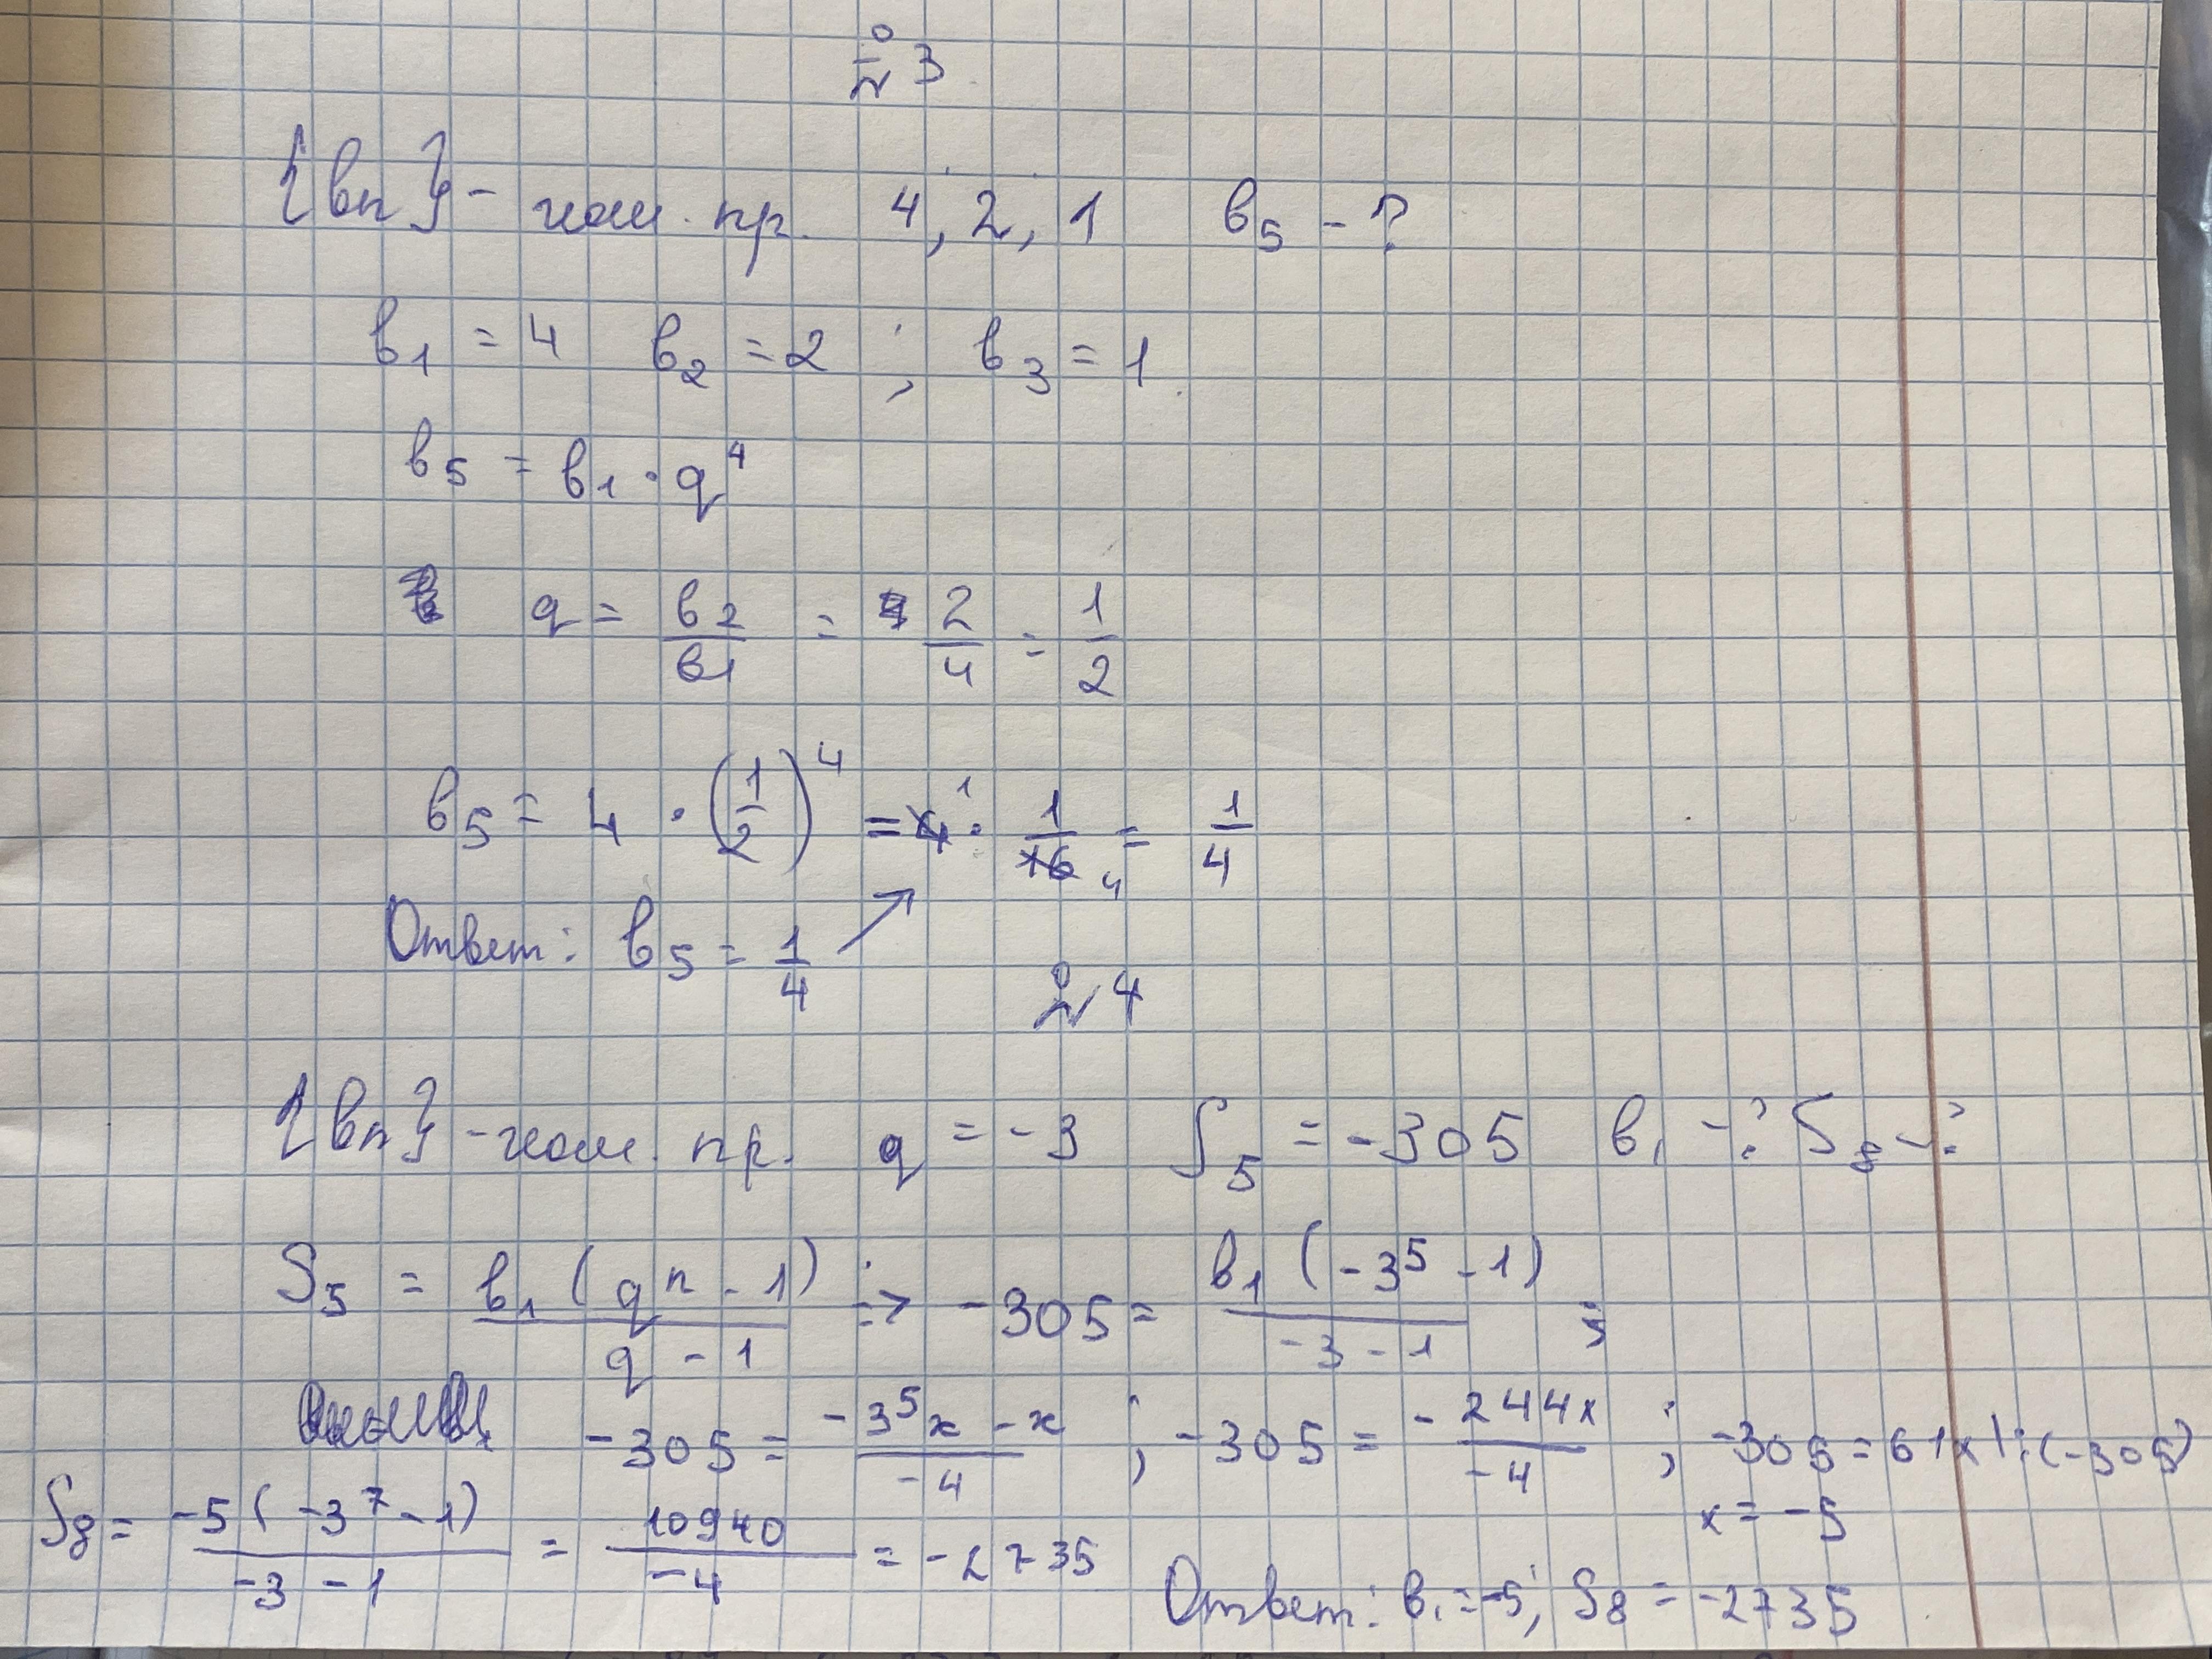 №3
{вn} - геом. пр. 4, 2, 1 в5 - ?
в1 = 4 в2 = 2 ; в3 = 1
в5 = в1 · q^4
q = в2/в1 = 2/4 = 1/2
в5 = 4 · (1/2)^4 = 4 1 · 1/16 4 = 1/4
Ответ: в5 = 1/4
№4
{вn} - геом. пр. q = -3 S5 = -305 в1 - ? S8 - ?
S5 = в1 (q^n - 1)/(q - 1) => -305 = в1 (-3^5 - 1)/(-3 - 1) ;
-305 = (-3^5x - x)/(-4) ; -305 = -244x/(-4) ; -305 = 61x |:(-305)
x = -5
S8 = -5(-3^7 - 1)/(-3 - 1) = 10940/(-4) = -2735
Ответ: в1 = -5; S8 = -2735